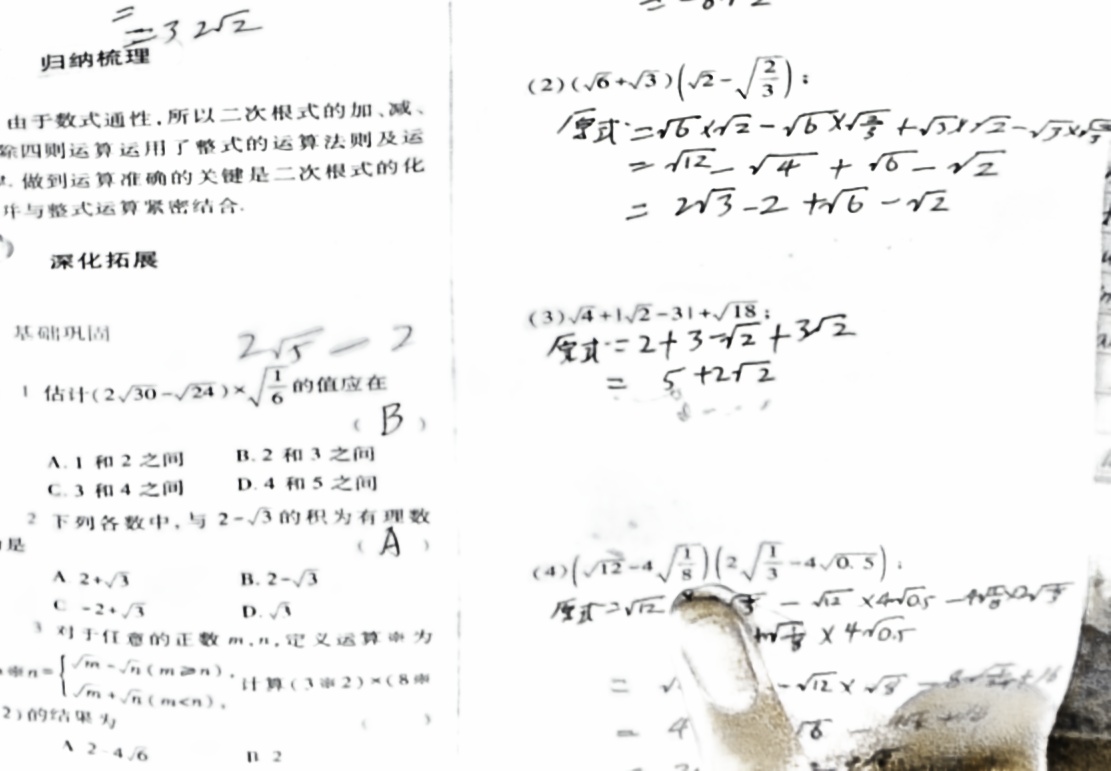 = 3 2√2
归纳梳理
由于数式通性,所以二次根式的加、减、
除四则运算运用了整式的运算法则及运
做到运算准确的关键是二次根式的化
并与整式运算紧密结合.
深化拓展
基础巩固
2√5 - 2
1 估计(2√30-√24)×√(1/6)的值应在
( B )
A. 1 和 2 之间 B. 2 和 3 之间
C. 3 和 4 之间 D. 4 和 5 之间
2 下列各数中,与 2-√3 的积为有理数
是 ( A )
A. 2+√3 B. 2-√3
C -2+√3 D. √3
3 对于任意的正数 m,n,定义运算※为
※n={√m-√n(m≥n),
√m+√n(m<n),
计算(3※2)×(8※
2)的结果为 ( )
A 2-4√6 B 2
(2)(√6+√3)(√2-√(2/3));
原式=√6×√2-√6×√(2/3)+√3×√2-√3×√(2/3)
=√12-√4+√6-√2
=2√3-2+√6-√2
(3)√4+|√2-3|+√18;
原式=2+3-√2+3√2
=5+2√2
(4)(√12-4√(1/8))(2√(1/3)-4√0.5);
原式=√12 - √12×4√0.5
×4√0.5
= -√12×√8
= 4 √6